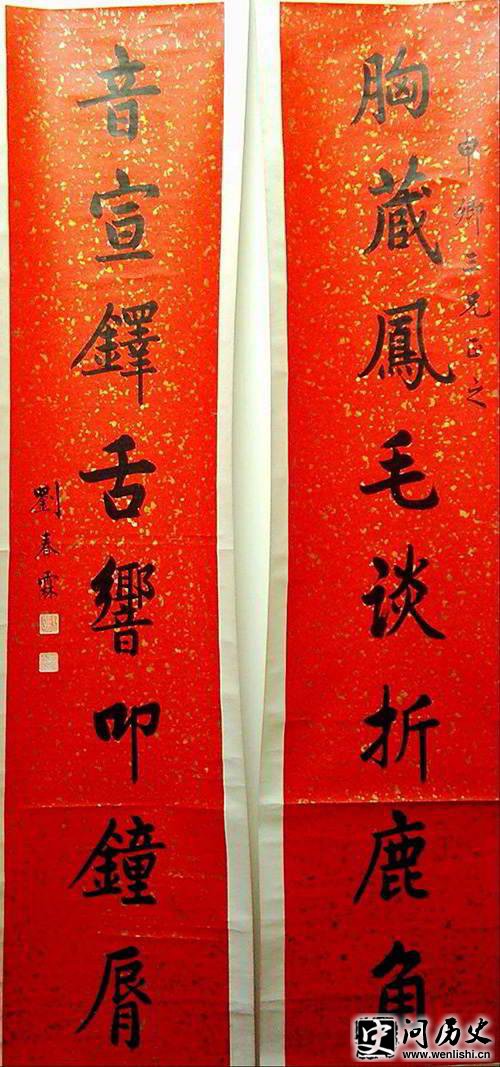 申卿三兄正之
胸藏鳳毛谈折鹿角
音宣鐸舌響叩鐘脣
劉春霖
问历史
www.wenlishi.cn